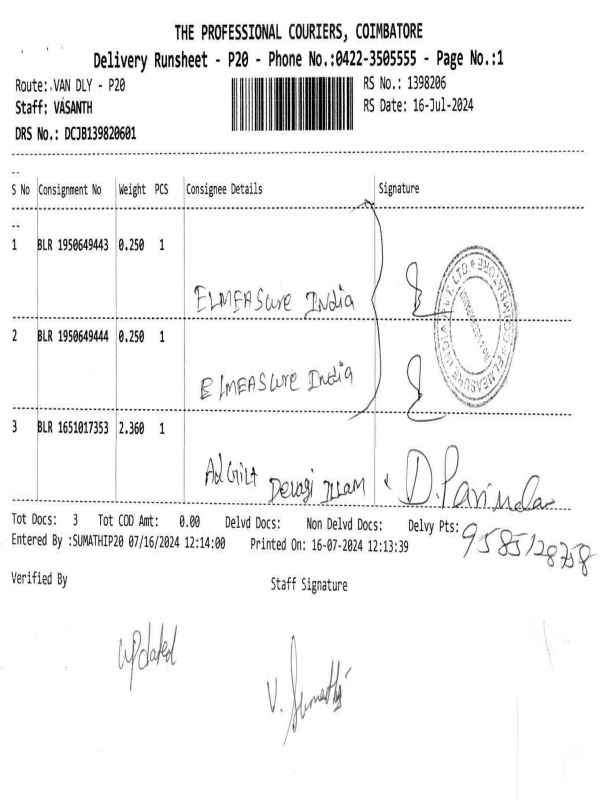 THE PROFESSIONAL COURIERS, COIMBATORE
Delivery Runsheet - P20 - Phone No.:0422-3505555 - Page No.:1
Route: VAN DLY - P20 RS No.: 1398206
Staff: VASANTH RS Date: 16-Jul-2024
DRS No.: DCJB139820601
S No Consignment No Weight PCS Consignee Details Signature
1 BLR 1950649443 0.250 1
ELMEASure India
2 BLR 1950649444 0.250 1
ELMEASure India
3 BLR 1651017353 2.360 1
Devagi Illam D.
Tot Docs: 3 Tot COD Amt: 0.00 Delvd Docs: Non Delvd Docs: Delvy Pts:
9585128758
Entered By :SUMATHIP20 07/16/2024 12:14:00 Printed On: 16-07-2024 12:13:39
Verified By Staff Signature
updated
V. Sumathi